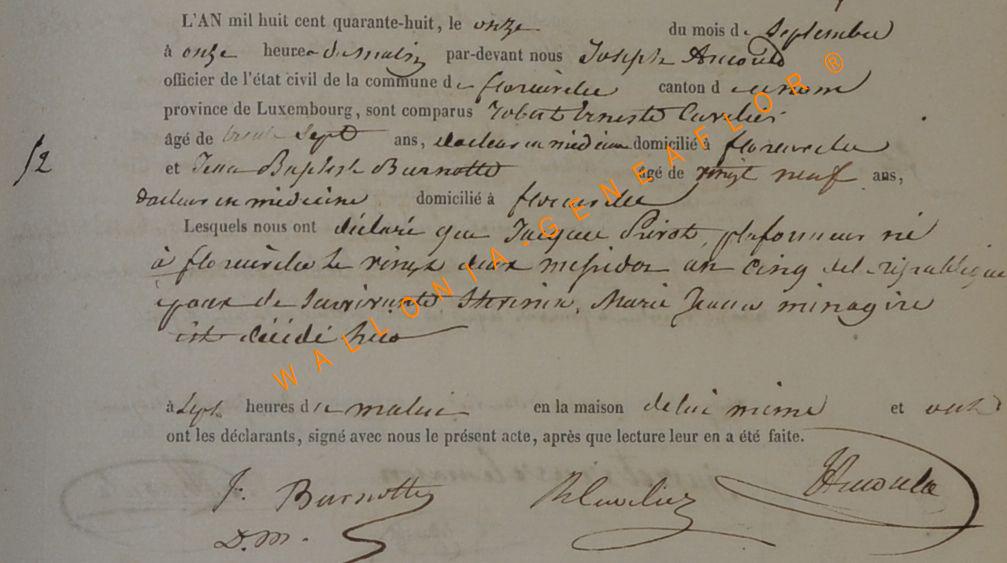 L'AN mil huit cent quarante-huit, le onze du mois de Septembre
à onze heures du matin par-devant nous Joseph Arnould
officier de l'état civil de la commune de florenville canton d
province de Luxembourg, sont comparus Robert Erneste Cuvelier
âgé de trente Sept ans, docteur en médecine domicilié à florenville
52
et Jean Baptiste Burnotte âgé de vingt neuf ans,
docteur en médecine domicilié à florenville
Lesquels nous ont déclaré que Jacques Pierot, plafonneur né
à florenville le vingt deux messidor an cinq de la république
époux de Survivante Marie Jeanne ménagère
est décédé hier
à Sept heures du matin en la maison de lui même et ont
ont les déclarants, signé avec nous le présent acte, après que lecture leur en a été faite.
J. Burnotte Cuvelier Arnould
D. M.
WALLONIA-GENEAFLOR®